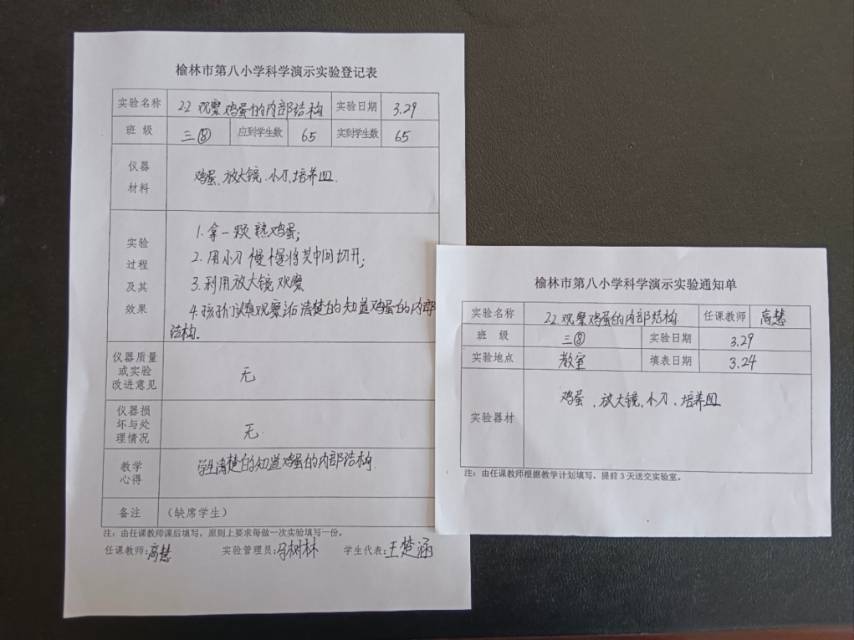 榆林市第八小学科学演示实验登记表
实验名称 22 观察鸡蛋的内部结构 实验日期 3.29
班 级 三⑧ 应到学生数 65 实到学生数 65
仪器
材料
鸡蛋、放大镜、小刀、培养皿.
实验
过程
及其
效果
1.拿一颗熟鸡蛋;
2.用小刀慢慢将其中间切开;
3.利用放大镜观察
4.孩子们认真观察后清楚的知道鸡蛋的内部
结构.
仪器质量
或实验
改进意见
无
仪器损
坏与处
理情况
无
教学
心得
学生清楚的知道鸡蛋的内部结构.
备注 (缺席学生)
注:由任课教师课后填写,原则上要求每做一次实验填写一份。
任课教师:高慧 实验管理员:马树林 学生代表:王楚涵
榆林市第八小学科学演示实验通知单
实验名称 22 观察鸡蛋的内部结构 任课教师 高慧
班 级 三⑧ 实验日期 3.29
实验地点 教室 填表日期 3.24
实验器材
鸡蛋、放大镜、小刀、培养皿
注:由任课教师根据教学计划填写,提前3天送交实验室。